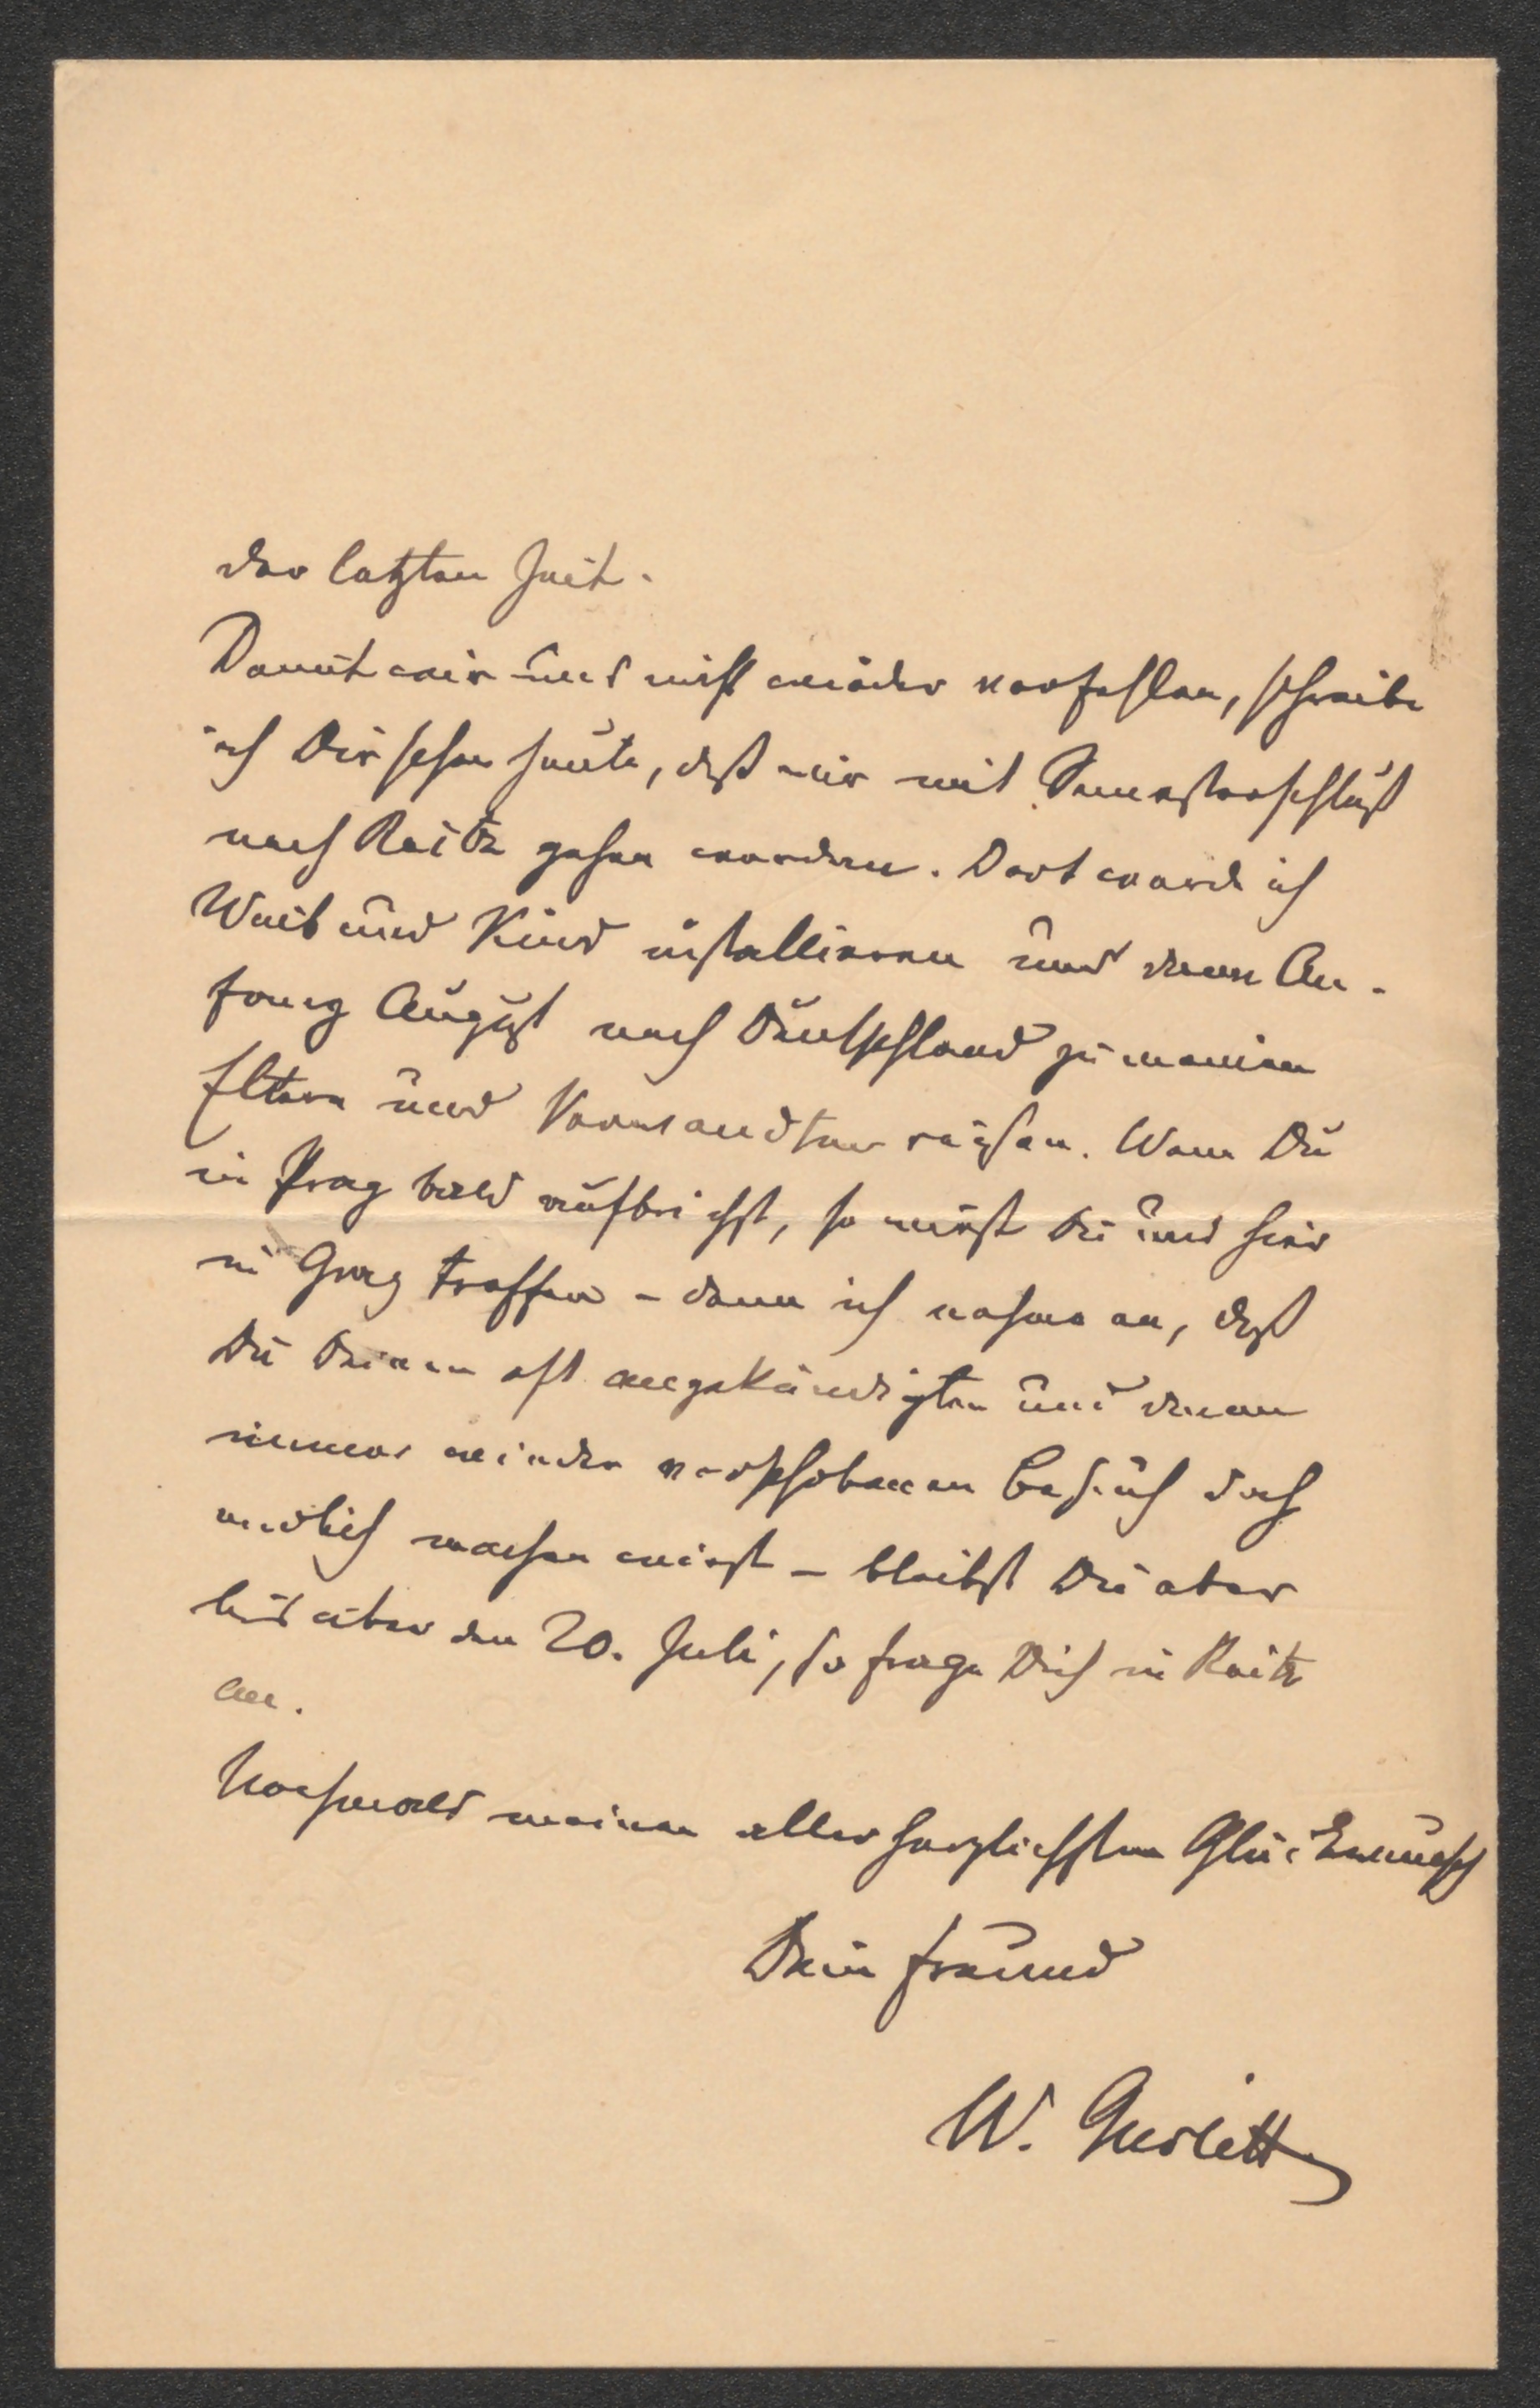 der letzten Zeit.
Damit wir uns nicht wieder verfehlen, schreibe
ich Dir schon heute, daß wir mit Semesterschluß
nach Raitz gehen werden. Dort werde ich
Weib und Kind installieren und dann An-
fang August nach Deutschland zu meinen
Eltern und Verwandten reisen. Wenn Du
in Prag bald aufbrichst, so wirst Du uns hier
in Graz treffen – denn ich nehme an, daß
Du Deinen oft angekündigten und dann
immer wieder verschobenen Besuch doch
endlich machen wirst – bleibst Du aber
bis über den 20. Juli, so frage Dich in Raitz
an.
Nochmals meinen allerherzlichsten Glückwunsch
Dein Freund
W. Gurlitt